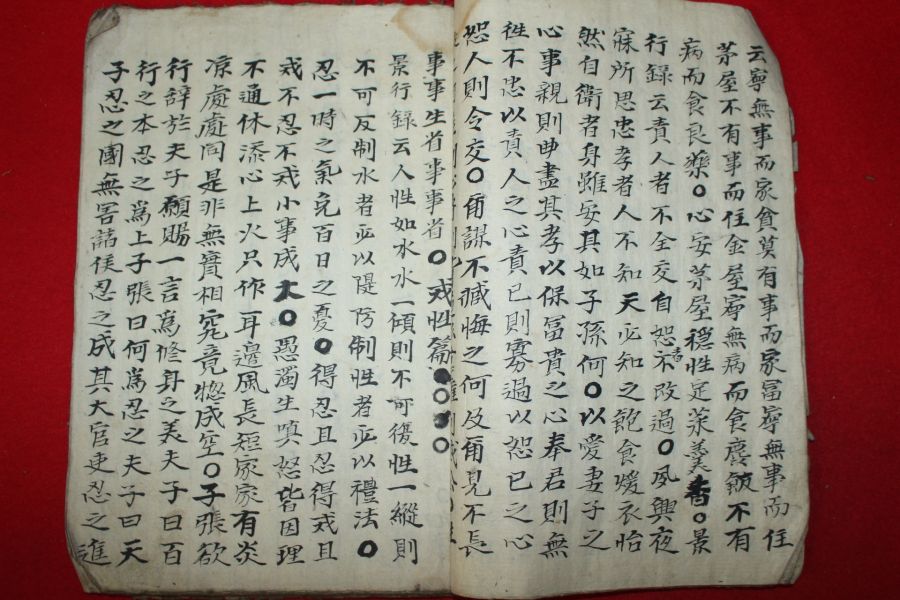 云寧無事而家貧莫有事而家冨寧無事而住
茅屋不有事而住金屋寧無病而食麄飯不有
病而食良藥〇心安茅屋穩性定菜羹香〇景
行録云責人者不全交自恕者不改過〇夙興夜
寐所思忠孝者人不知天必知之飽食煖衣怡
然自衛者身雖安其如子孫何〇以愛妻子之
心事親則曲盡其孝以保冨貴之心奉君則無
徃不忠以責人之心責已則寡過以恕已之心
恕人則令交〇爾謀不臧悔之何及爾見不長
事事生省事事省〇戒性篇
景行録云人性如水水一傾則不可復性一縱則
不可反制水者必以隄防制性者必以禮法〇
忍一時之氣免百日之憂〇得忍且忍得戒且
戒不忍不戒小事成大〇愚濁生嗔怒皆因理
不通休添心上火只作耳邊風長短家家有炎
凉處處同是非無實相究竟惣成空〇子張欲
行辭於夫子願賜一言爲修身之美夫子曰百
行之本忍之爲上子張曰何爲忍之夫子曰天
子忍之國無害諸侯忍之成其大官吏忍之進